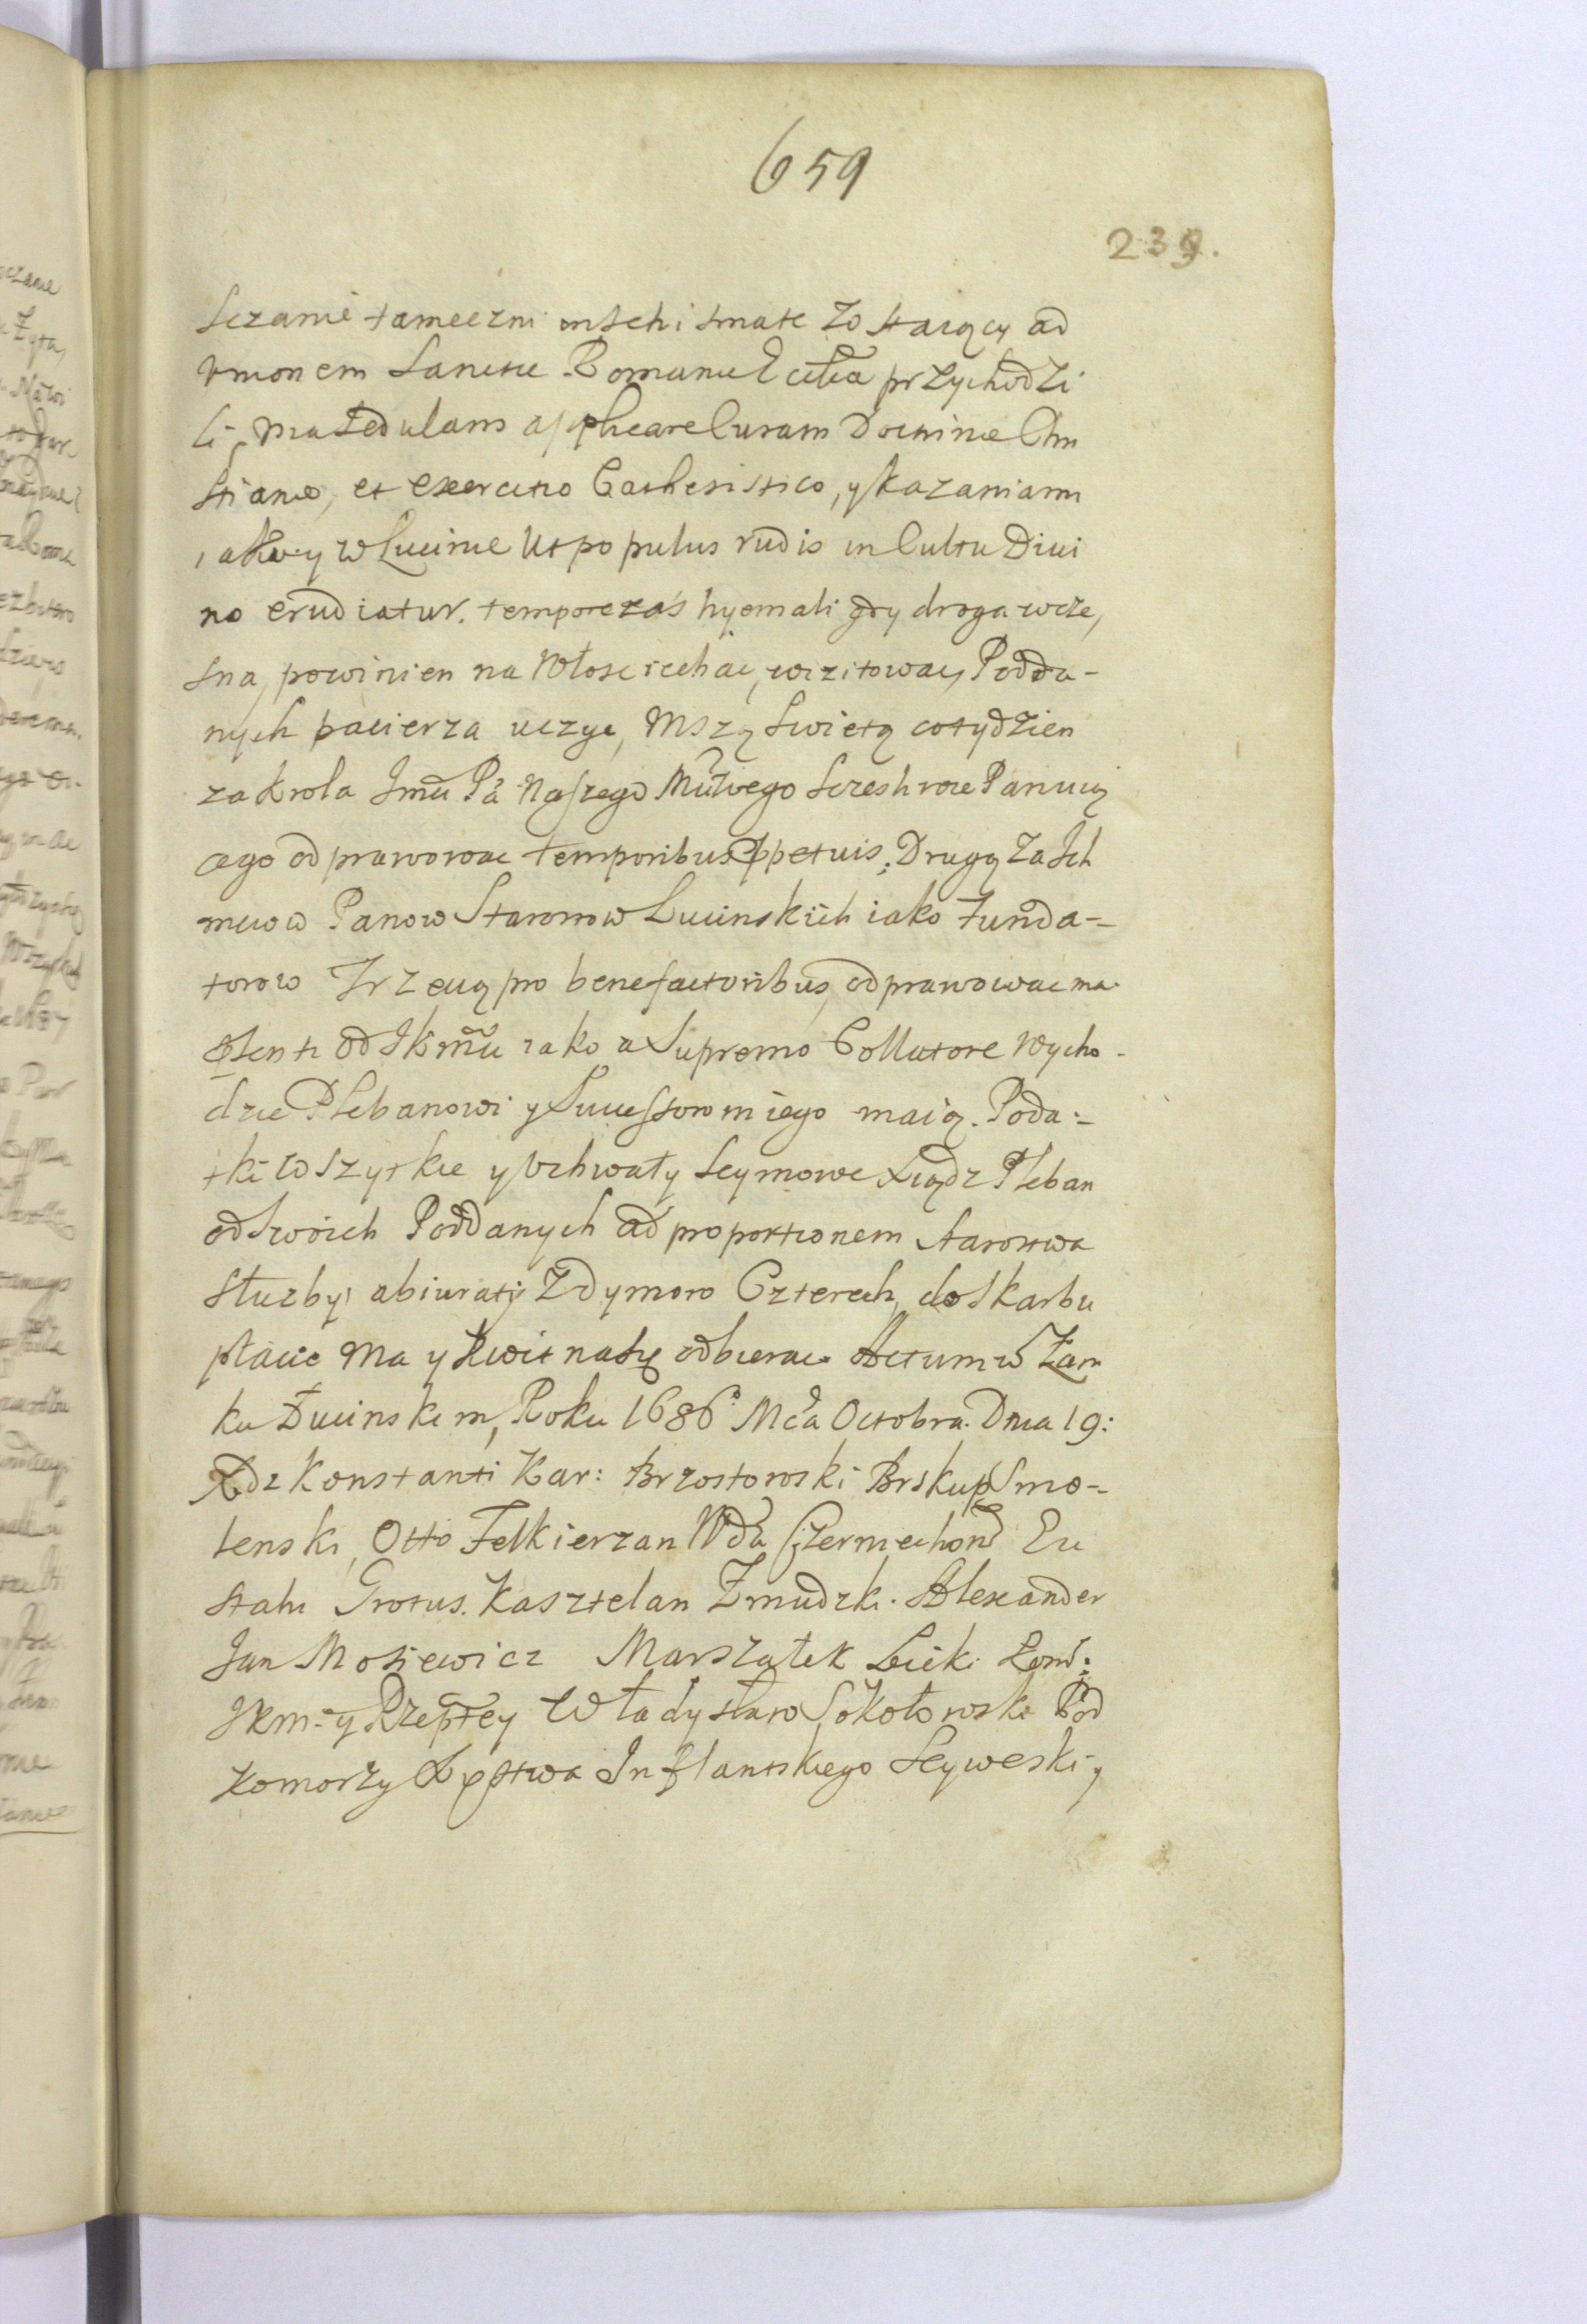 659
239.
sczanie tameczni in Schismate zostaiący ad
Vnionem Sanctae Romanae Eccllae przychodzi
li, ma Sedulam applicare Curam Doctrinae Chri
stianae, et exercitio Cathesistico, y kazaniami
iako y w Lucinie Ut populus rudis in Cultu Divi
no erudiatur. tempore zas hyemali gdy droga wcze,
sna, powinien na Włosciechac, wizitowac, Podda-
nych pacierza uczyc, Mszą Swietą cotydzien
za Krola Jmci Pa Naszego Młwego sczesliwie Panuią
cego odprawowac temporibus ppetuis, Drugą za Ich
mciow Panow Starostow Lucinskich iako Funda-
torow Trzecią pro benefactoribus, odprawowac ma.
od JKmci iako a Supremo Collatore wycho-
dzic Plebanowi y Successorom iego maią. Poda-
tki wszytkie y Vchwały Seymowe Xiądz Pleban
od swoich Poddanych ad proportionem starostwa
Służby abiuraty z dymow Czterech, do Skarbu
płacic ma y kwit na się odbierac. Actum w Zam
ku Lucinskim, Roku 1686 Mca Octobra. Dnia 19:
Xdz Konstanti Kar: Brzostowski Biskup Smo-
lenski, Otto Felkierzan Wda Czerniechow Eu
stahi Grotus. Kasztelan Zmudzki. Alexander
Jan Mosiewicz Marszałek Lidzki
JKm: y Rzeptey Władysław Sokołowski Pod
komorzy Xęstwa Inflantskiego Seyweski y